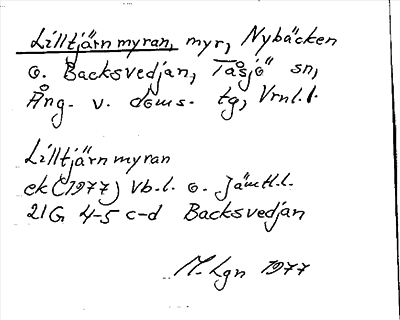 Lilltjärnmyran, myr, Nybäcken
o. Backsvedjan, Tåsjö sn,
Ång. v. doms. tg, Vrnl.l.
Lilltjärnmyran
ek (1977) Vb.l. o. Jämtl.l.
21G 4-5 c-d Backsvedjan
M. Lgn 1977